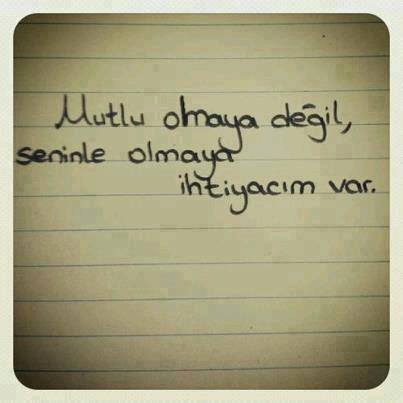 Mutlu olmaya değil,
seninle olmaya
ihtiyacım var.